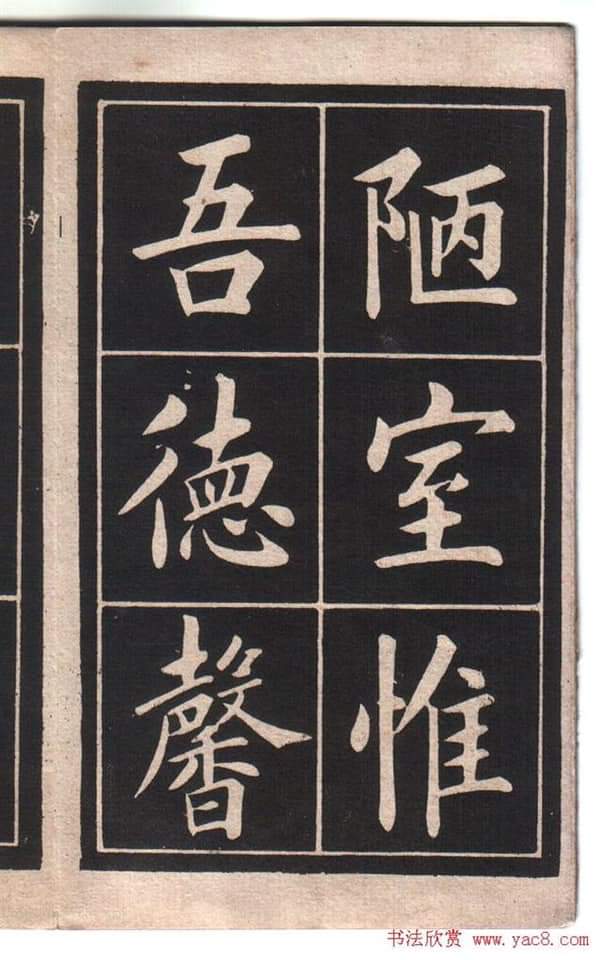 陋室惟
吾德馨
书法欣赏 www.yac8.com